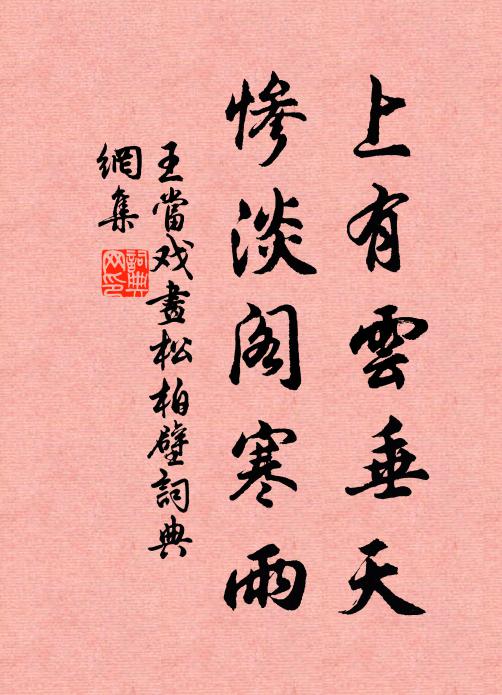 上有雲垂天
慘淡閣寒雨
王當戏畫松柏壁詞典
網集
詞典
网印